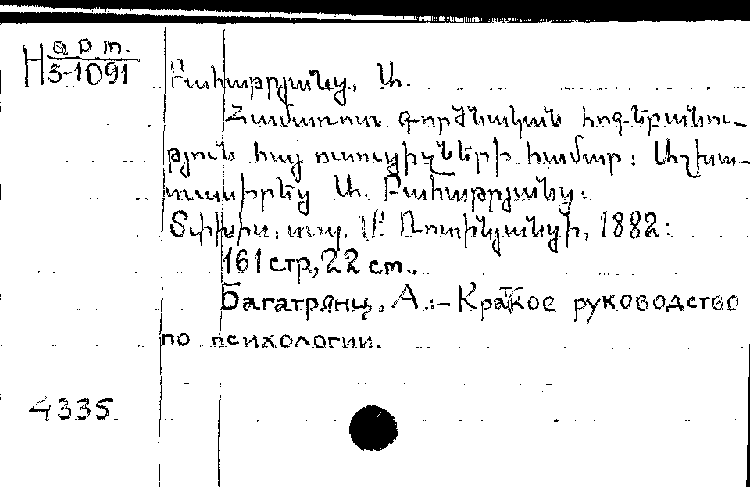 арт.
H 5-1091
Բահաթրյանց, Ա.
Համառօտ գործնական հոգեբանու-
թյուն հայ ուսուցիչների համար: Աշխա-
տասիրեց Ա. Բահաթրյանց:
Տփխիս, տպ. Մ. Ռոտինյանցի, 1882:
161 стр, 22 cm.
Багатрянц, А.:- Краткое руководство
по психологии.
4335